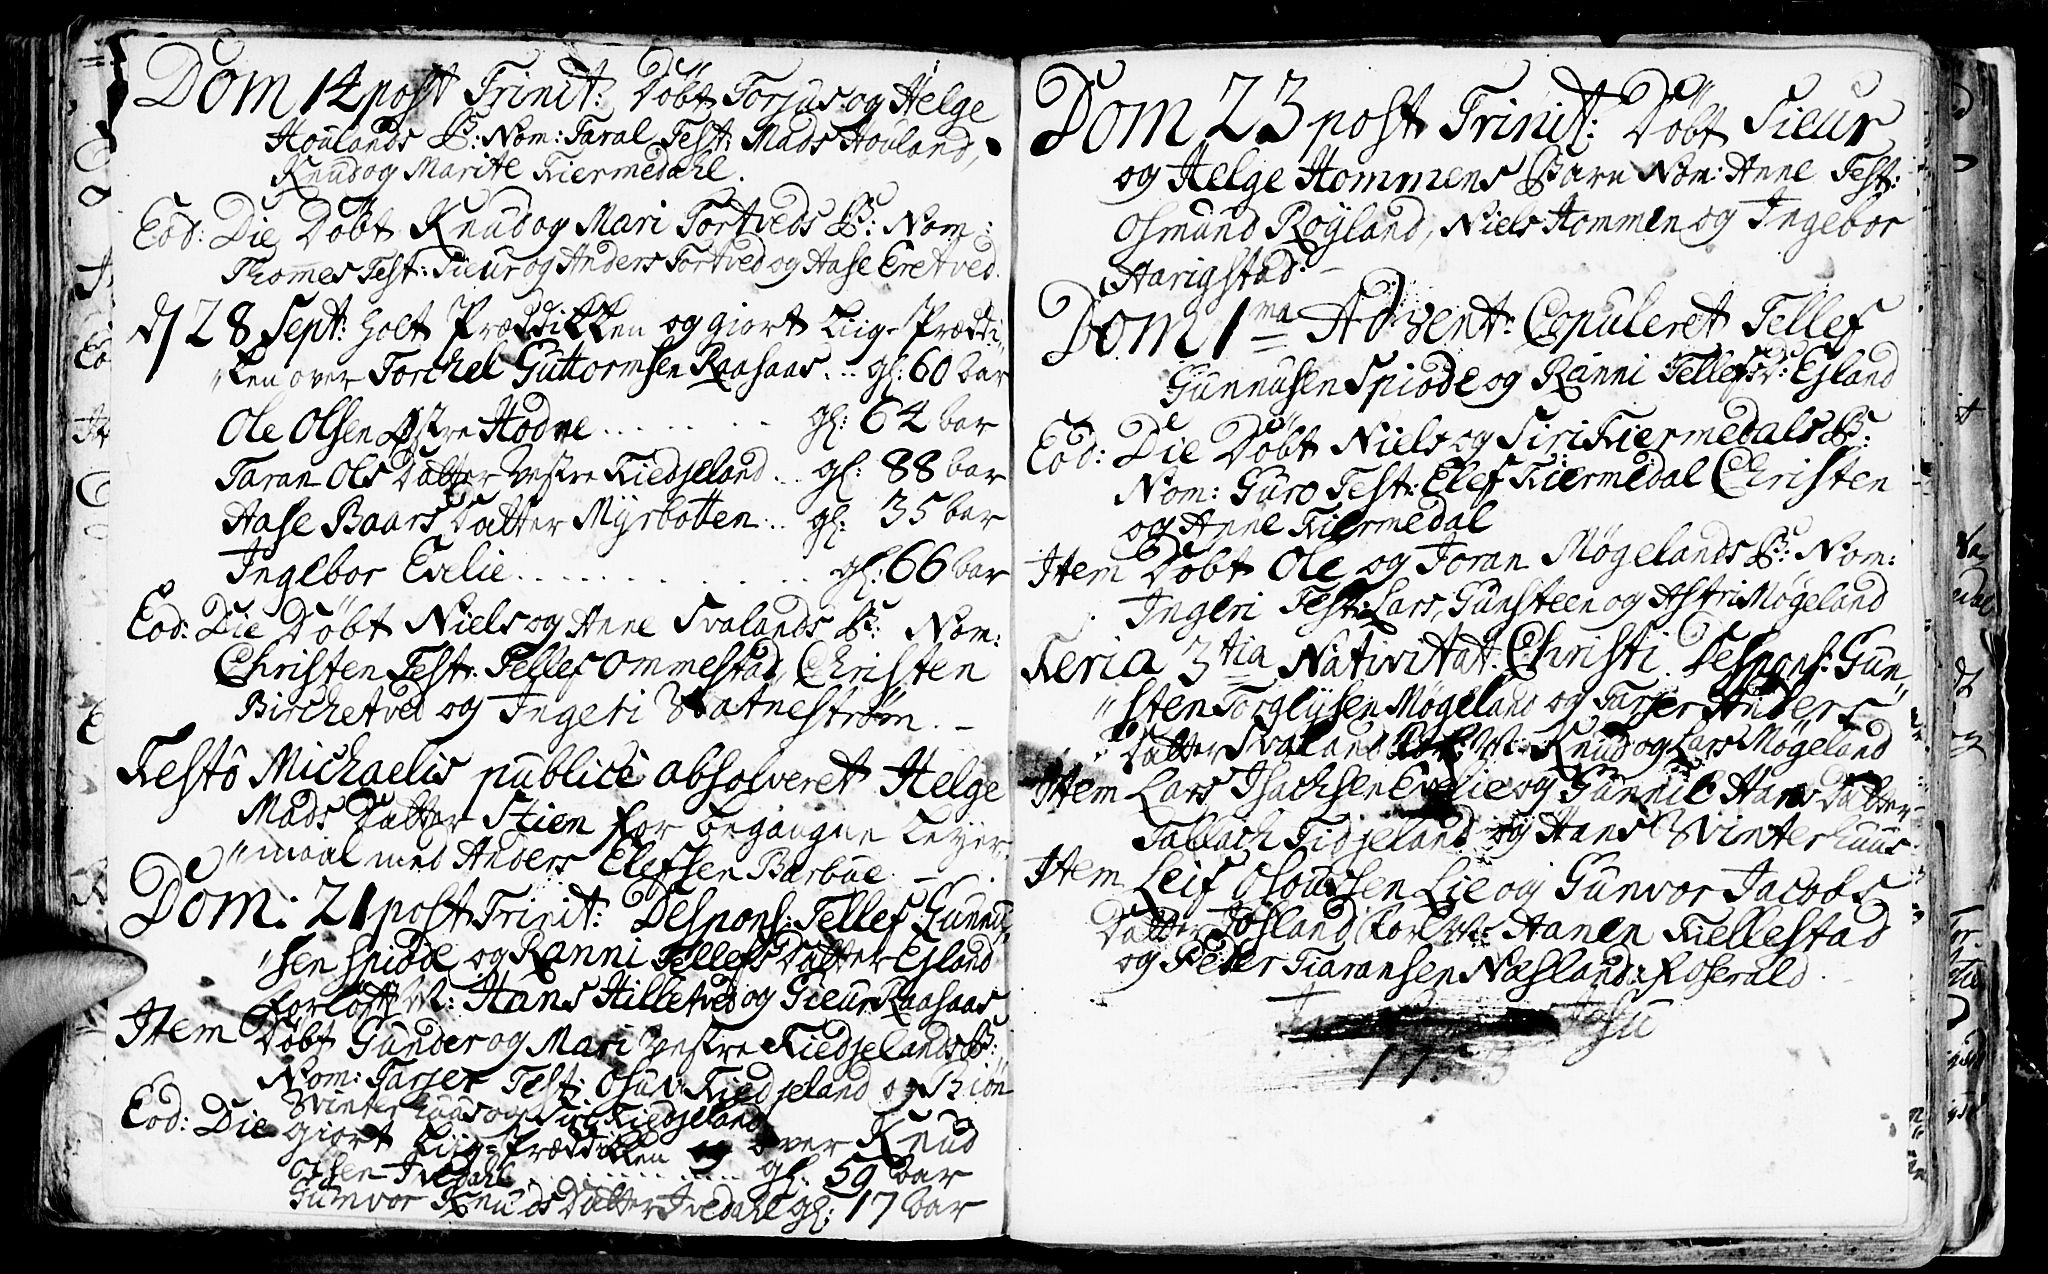 Dom 14 post Trinit: Döbt Torjus og Helge
Houlands B: Nom: Taral Test: Mads Houland,
Knud og Marite Kiermedahl.
Eod: Die Döbt Knud og Mari Tortveds B: Nom:
Thomes Test: Sieur og Anders Tortved og Aase Eretved.
d 28 Sept: holt Præddikken og giort Liig-Præddi
"ken over Torchel Guttormsen Raasaas .. gl: 60 bar
Ole Olsen Østre Hodne ........ gl: 64 bar
Taran Ols Datter Vestre Kiedjeland .. gl: 88 bar
Aase Baars Datter Myrbotten .. gl: 35 bar
Ingebor Evelie .............. gl: 66 bar
Eod: Die Döbt Niels og Anne Svalands B: Nom:
Christen Test: Tellef Ommestad, Christen
Birchetved og Ingeri Vatnestrøm. -
Festo Michaelis publice absolveret Helge
Mads Datter Stien for begangne Lejer
"maal med Anders Elefsen Barbue. -
Dom: 21 post Trinit: Despons: Tellef Gunnu
"sen Spiode og Ranni Tellefs Datter Ejland
Forlofv: M: Hans Hilletved og Sieur Raasaas
Item Döbt Gunder og Mari Vestre Kiedjelands B:
Nom: Tarjer Test: Osuv Kiedjeland og Biön
Vinterhuus og Siri Kiedjeland
Eod: Die giort Liig-Præddikken over Knud
Olsen Ivedahl ............ gl: 59 bar
Gunvor Knuds Datter Ivedahl gl: 17 bar
Dom 23 post Trinit: Döbt Sieur
og Helge Hommens Barn Nom: Anne Test:
Osmund Röyland, Niels Hommen og Ingebor
Harigstad. -
Dom 1ma Advent: Copuleret Tellef
Gunnusen Spiode og Ranni Tellefs D: Ejland
Eod: Die Döbt Niels og Siri Kiermedals B:
Nom: Guro Test: Elef Kiermedal Christen
og Anne Kiermedal
Item Döbt Ole og Joran Møgelands B: Nom:
Ingeri Test: Lars, Gunsteen og Astri Møgeland
Feria 3tia Nativitat: Christi. Despons: Gun
"sten Torgiusen Møgeland og Tarjer Anders
Datter Svaland M: Knud og Lars Møgeland
Item Lars Isachsen Evelie og Gunnil Hans Datter
Tallach Kidjeland og Hans Vinterhuus
Item Leif Osoufsen Lie og Gunvor Jacobs
Datter Fosland Forl: M: Hanen Kiellestad
og Peder Tiaransen Næsland: Roserald